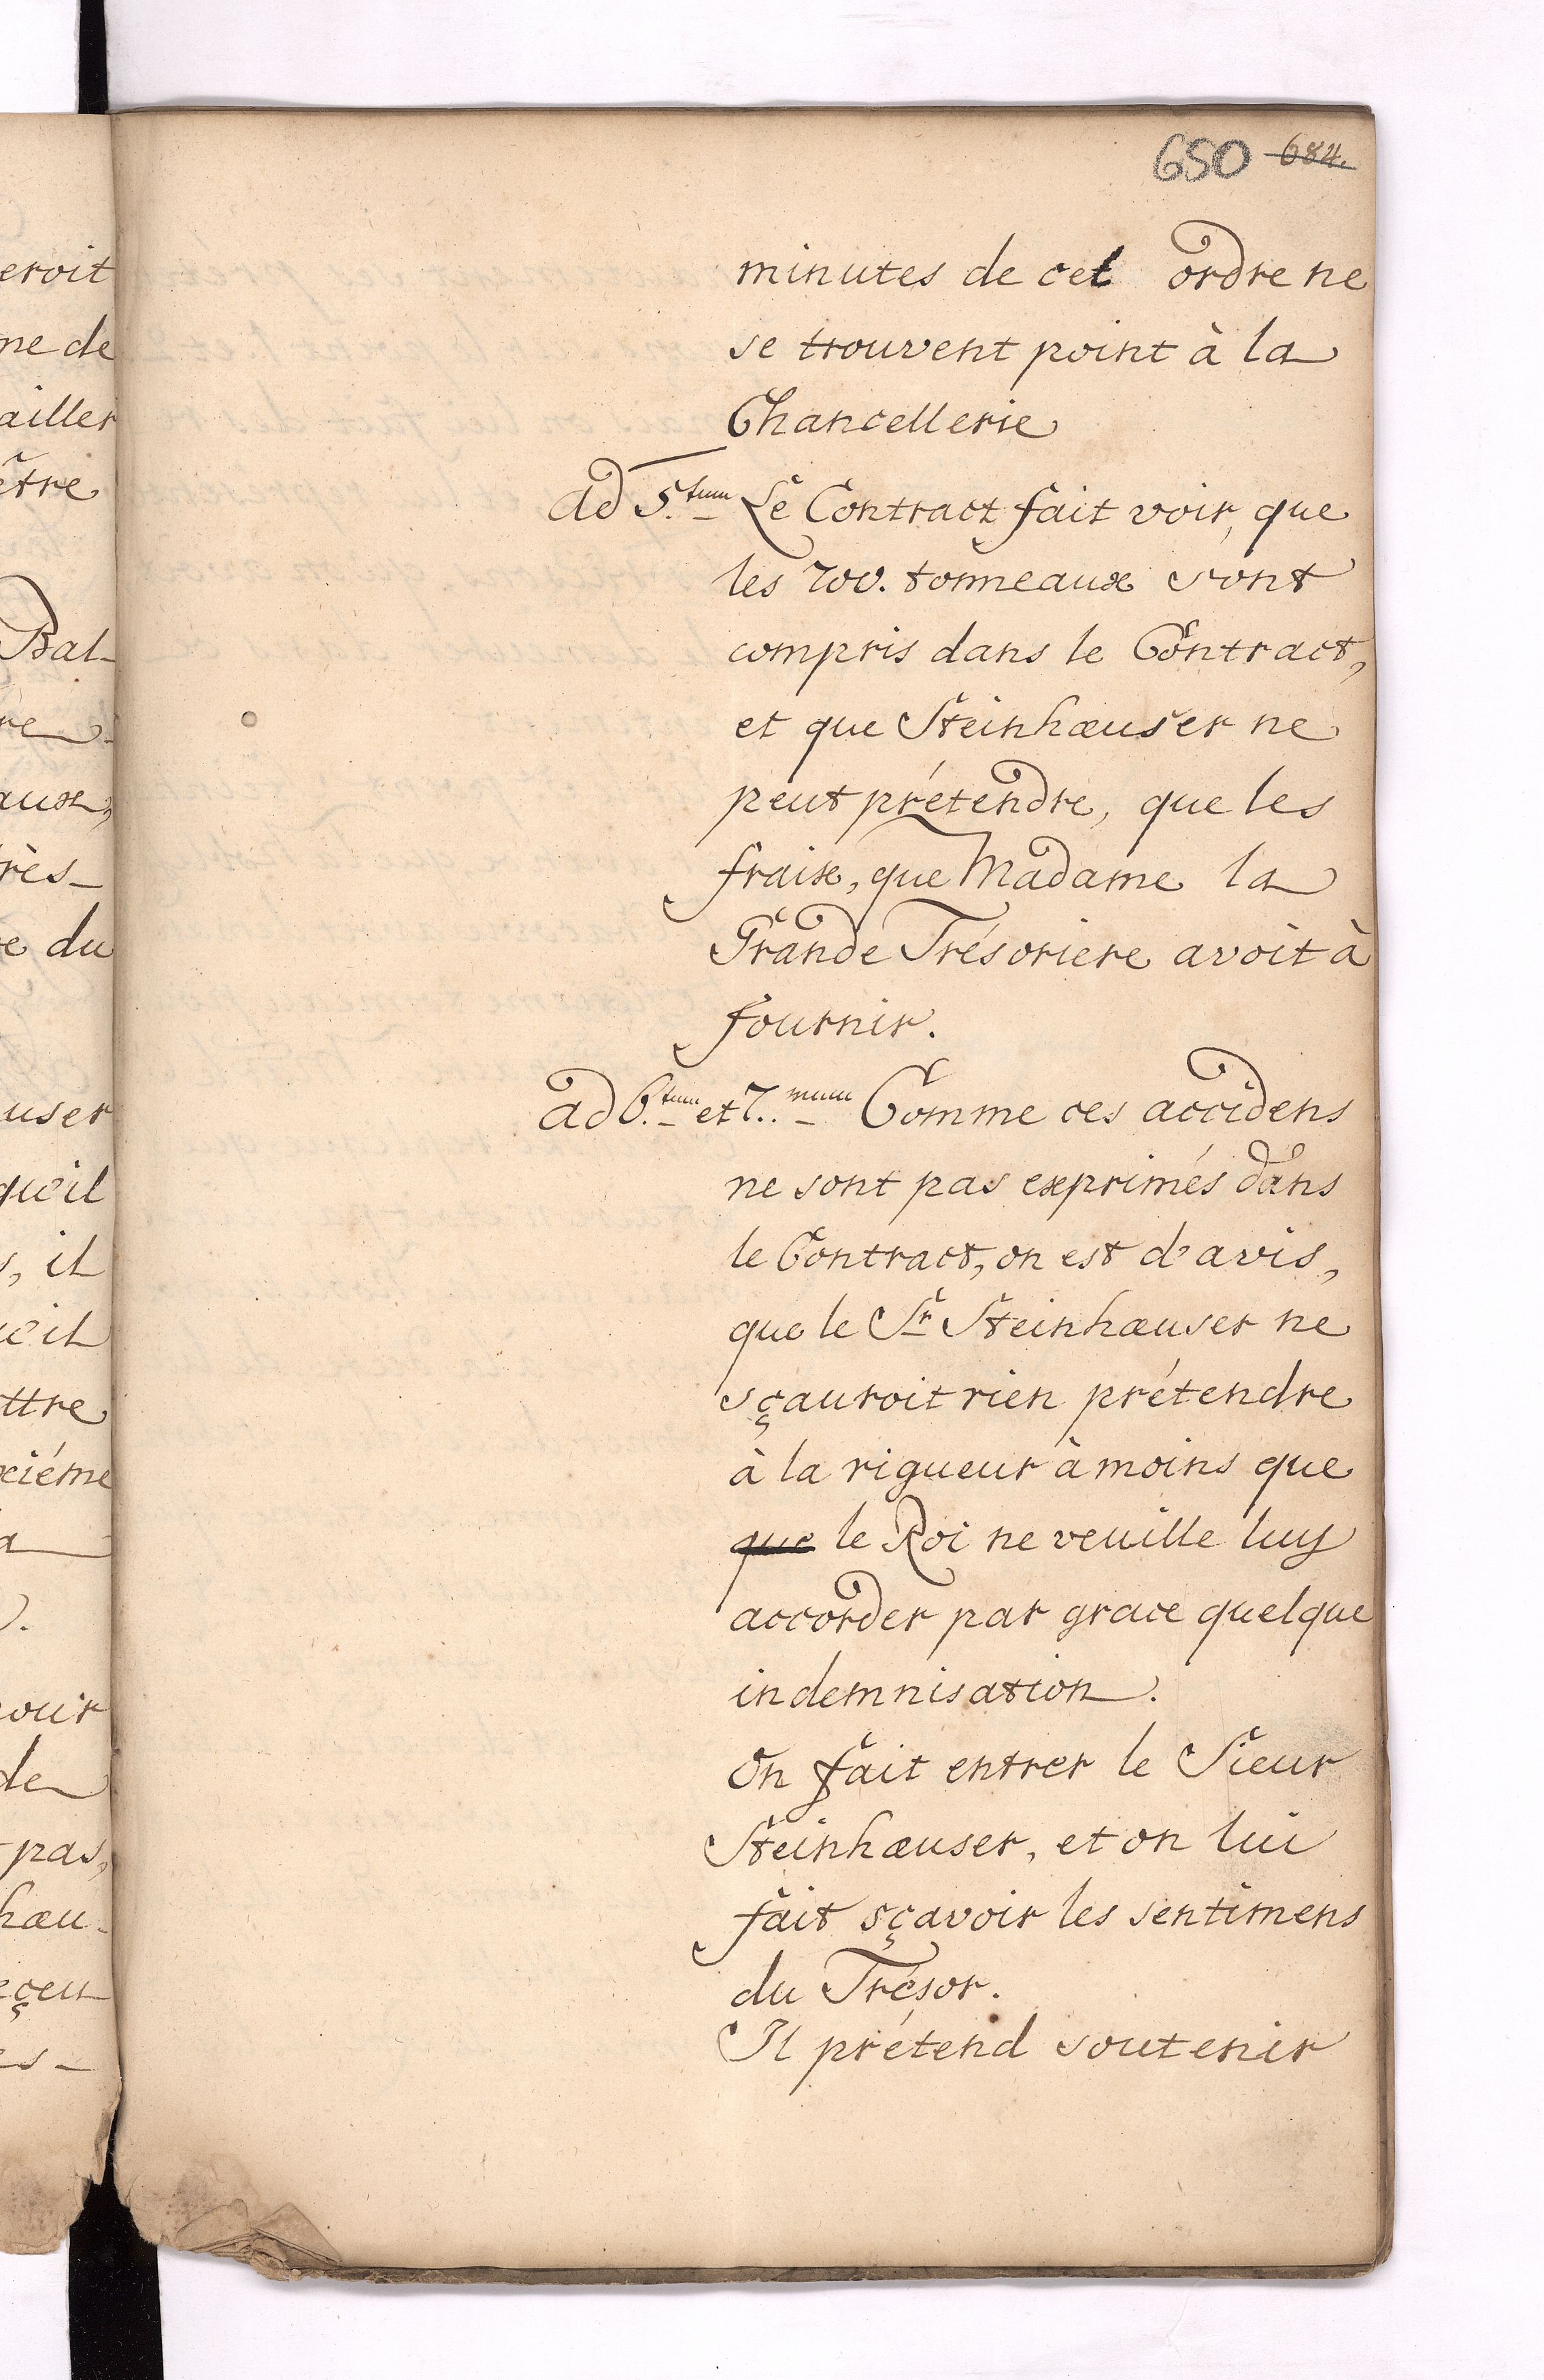 650 684.
minutes de cet ordre ne
se trouvent point à la
Chancellerie
ad 5.tum Le Contract fait voir, que
les 700. tonneaux sont
compris dans le Contract,
et que Steinhæuser ne
peut prétendre, que les
fraix, que Madame la
Grande Trésoriere avoit à
fournir.
ad 6.tum et 7.mum Comme ces accidens
ne sont pas exprimés dans
le Contract, on est d'avis,
que le Sr Steinhæuser ne
sçauroit rien prétendre
à la rigueur à moins que
que le Roi ne veuille luy
accorder par grace quelque
indemnisation.
On fait entrer le Sieur
Steinhæuser, et on lui
fait sçavoir les sentimens
du Trésor.
Il prétend soutenir
eroit
me de
ailler
être
Bal-
re-
aux,
très-
e du
user
qu'il
, il
u'il
ttre
xiéme
a
our
de
pas,
hæu-
eçeu
es-